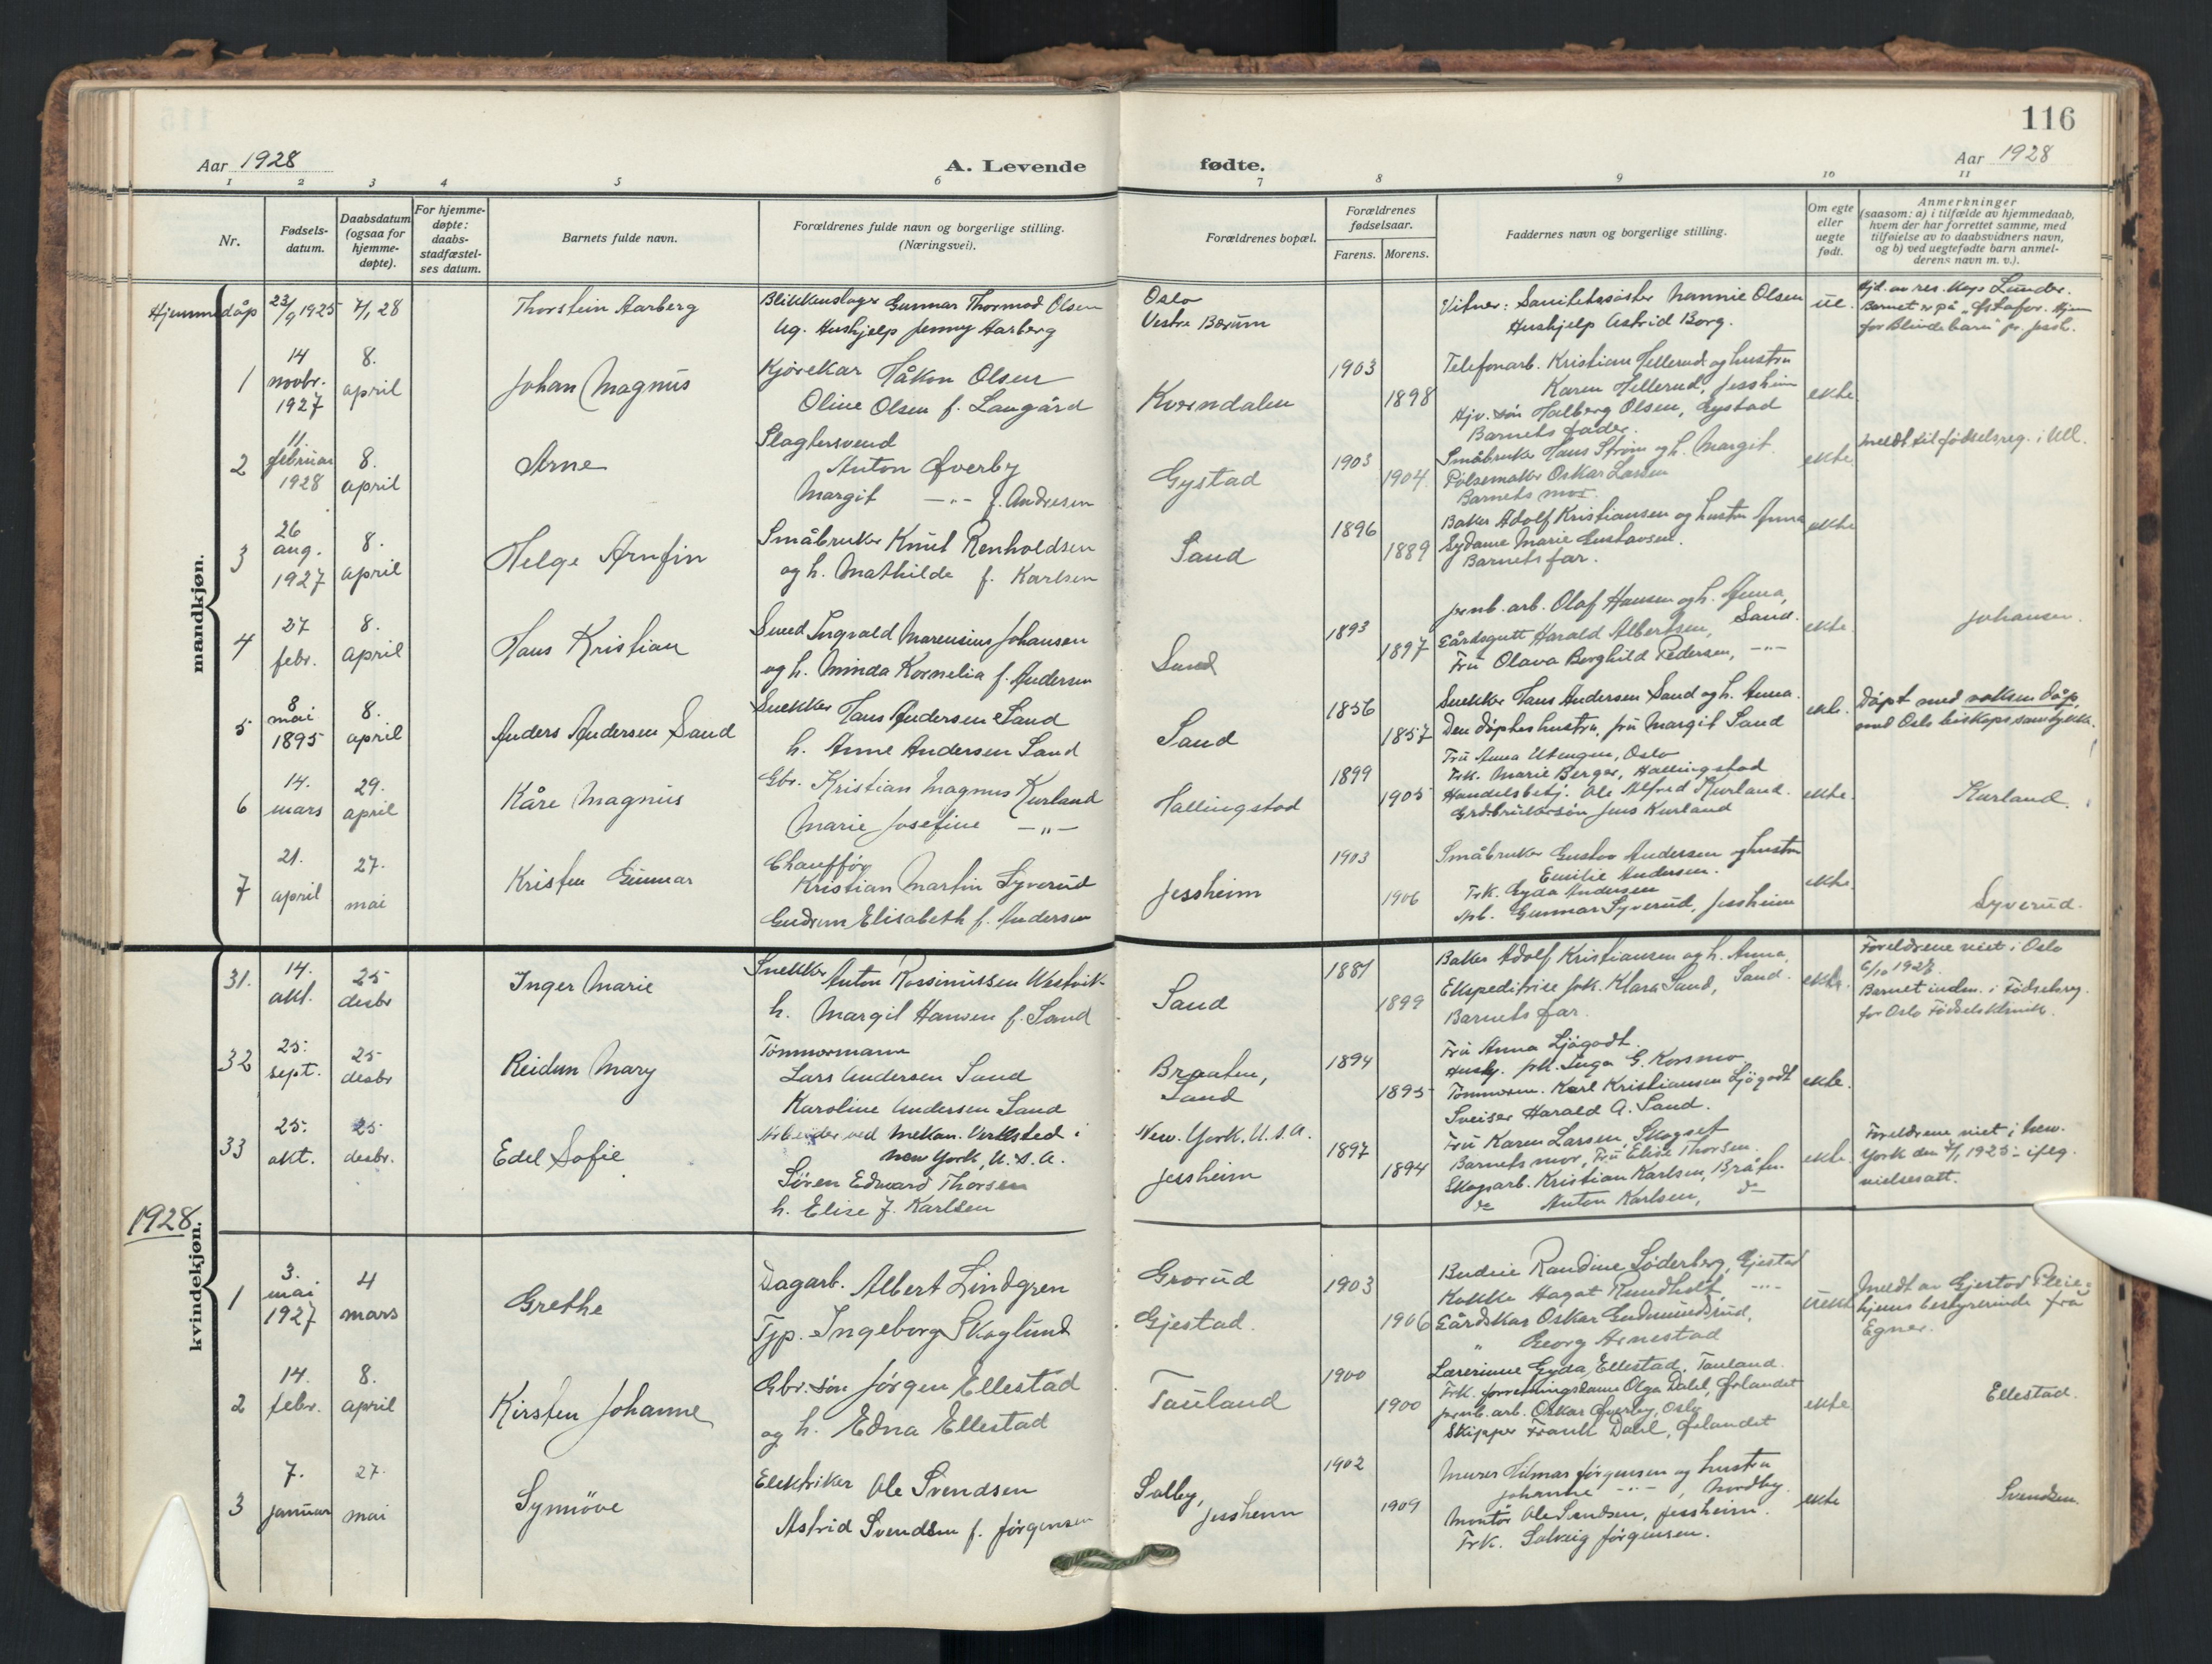 116
Aar 1928
A. Levende
fødte.
Aar 1928
1 2 3 4 5 6 7 8 9 10 11
Nr.
Fødsels-
datum.
Daabsdatum
(ogsaa for
hjemme-
døpte).
For hjemme-
døpte:
daabs-
stadfæstel-
ses datum.
Barnets fulde navn.
Forældrenes fulde navn og borgerlige stilling.
(Næringsvei).
Forældrenes bopæl.
Forældrenes
fødselsaar.
Farens. Morens.
Faddernes navn og borgerlige stilling.
Om egte
eller
uegte
født.
Anmerkninger
(saasom: a) i tilfælde av hjemmedaab,
hvem der har forrettet samme, med
tilføielse av to daabsvidners navn,
og b) ved uegtefødte barn anmel-
derens navn m. v.).
mandkjøn.
Hjemmedåp
23/9 1925
7/1 28
Thorstein Aarberg
Blikkenslager Gunnar Thormod Olsen
Ug. Hushjelp Jenny Aarberg
Oslo
Vestre Bærum
Vitner: Sanitetssøster Nannie Olsen
Hushjelp Astrid Borg.
ue.
Hjd. av res. kap Lunder.
Barnet er på "Østafor. Hjem
for Blinde barn" pr. Jessh.
1
14
novbr.
1927
8.
april
Johan Magnus
Kjørekar Håkon Olsen
Oline Olsen f. Laugård
Kverndalen
1903
1898
Telefonarb. Kristian Hellerud og hustru
Karen Hellerud, Jessheim
Hjv. søn Halberg Olsen, Gystad
Barnets fader.
ekte
2
11.
februar
1928
8.
april
Arne
Slagtersvend
Anton Øverby
Margit —"— f. Andresen
Gystad
1903
1904
Småbruker Hans Strøm og h. Margit.
Pølsemaker Oskar Larsen
Barnets mor.
ekte
meldt til fødselsreg. i Ull.
3
26
aug.
1927
8.
april
Helge Arnfin
Småbruker Knut Renholdsen
og h. Mathilde f. Karlsen
Sand
1896
1889
Baker Adolf Kristiansen og hustru Anna
Sydame Marie Gustavsen.
Barnets far.
ekte
4
27
febr.
8.
april
Hans Kristian
Smed Ingvald Marensius Johansen
og h. Minda Kornelia f. Andersen
Sand
1893
1897
Jernb. arb. Olaf Hansen og h. Anna,
Gårdsgutt Harald Albertsen, Sand.
Fru Olava Borghild Pedersen, —"—
ekte
Johansen.
5
8
mai
1895
8.
april
Anders Andersen Sand
Snekker Hans Andersen Sand
h. Anne Andersen Sand
Sand
1856
1857
Snekker Hans Andersen Sand og h. Anna.
Den døptes hustru, fru Margit Sand
ekte.
Døpt med voksen dåp,
med Oslo biskops samtykke.
6
14.
mars
29.
april
Kåre Magnus
Gbr. Kristian Magnus Kurland
Marie Josefine —"—
Hallingstad
1899
1905
Fru Anna Utengen, Oslo
Frk. Marie Berger, Hallingstad
Handelsbetj. Ole Alfred Kurland.
Grdbrukersøn Jens Kurland
ekte.
Kurland.
7
21.
april
27.
mai
Kristen Gunnar
Chauffør
Kristian Martin Syverud
Gudrun Elisabeth f. Andersen
Jessheim
1903
1906
Småbruker Gustav Andersen og hustru
Emilie Andersen.
Frk. Gyda Andersen
Arb. Gunnar Syverud, Jessheim
ekte
Syverud.
31.
14.
okt.
25
desbr
Inger Marie
Snekker Anton Rasmussen Westvik
h. Margit Hansen f. Sand
Sand
1881
1899
Baker Adolf Kristiansen og h. Anna,
Ekspeditrise frk. Klara Sand, Sand.
Barnets far.
ekte.
Foreldrene viet i Oslo
6/10 1927.
Barnet innm. i Fødselsreg.
for Oslo Fødselsklinik.
32
25.
sept.
25
desbr
Reidun Mary
Tømmermann
Lars Andersen Sand
Karoline Andersen Sand
Braaten,
Sand
1894
1895
Fru Anna Ljøgodt.
Hush. frk. Inga G. Korsmo.
Tømmerm. Karl Kristiansen Ljøgodt
Sveiser Harald A. Sand.
ekte.
33
25.
okt.
25
desbr.
Edel Sofie
Arbeider ved mekan. Verksted i
New York, U.S.A.
Søren Edward Thorsen
h. Elise f. Karlsen
New. York. U.S.A.
Jessheim
1897
1894
Fru Karen Larsen, Skogset
Barnets mor, Fru Elise Thorsen.
Skogsarb. Kristian Karlsen, Bråten.
do Anton Karlsen, do
ekte.
Foreldrene viet i New.
York den 1925 - ifølg.
vielsesatt.
1928.
kvindekjøn.
1
3.
mai
1927
4
mars
Grethe
Dagarb. Albert Lindgren
Tjp. Ingeborg Skoglund
Grorud
Gjestad.
1903
1906
Budeie Randine Søderberg, Gjestad
Kokke Aagot Rundholt, —"—
Gårdskar Oskar Gudmundsrud,
" Georg Arnestad
uekt
Meldt av Gjestad Pleie-
hjems bestyrerinde frå
Egner.
2
14.
febr.
8.
april
Kirsten Johanne
Gbr. søn Jørgen Ellestad
og h. Edna Ellestad
Tauland
1900
1900
Lærerinne Gyda Ellestad, Tauland.
Frk. forretningsdame Olga Dahl, Ørlandet
Jernb. arb. Oskar Øverby, Oslo
Skipper Frank Dahl, Ørlandet
ekte
Ellestad.
3
7.
januar
27.
mai
Synnöve
Elektriker Ole Svendsen
Astrid Svendsen f. Jørgensen
Solby,
Jessheim
1902
1909
Murer Hilmar Jørgensen og hustru
Johanne —"— , Nordby.
Montør Ole Svendsen, Jessheim.
Frk. Solveig Jørgensen.
ekte
Svendsen.